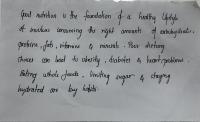 Good nutrition is the foundation of a healthy lifestyle
It involves consuming the right amounts of carbohydrates,
proteins, fats, vitamins & minerals. Poor dietary
choices can lead to obesity, diabetes & heart problems.
Eating whole foods, limiting sugar & staying
hydrated are key habits.